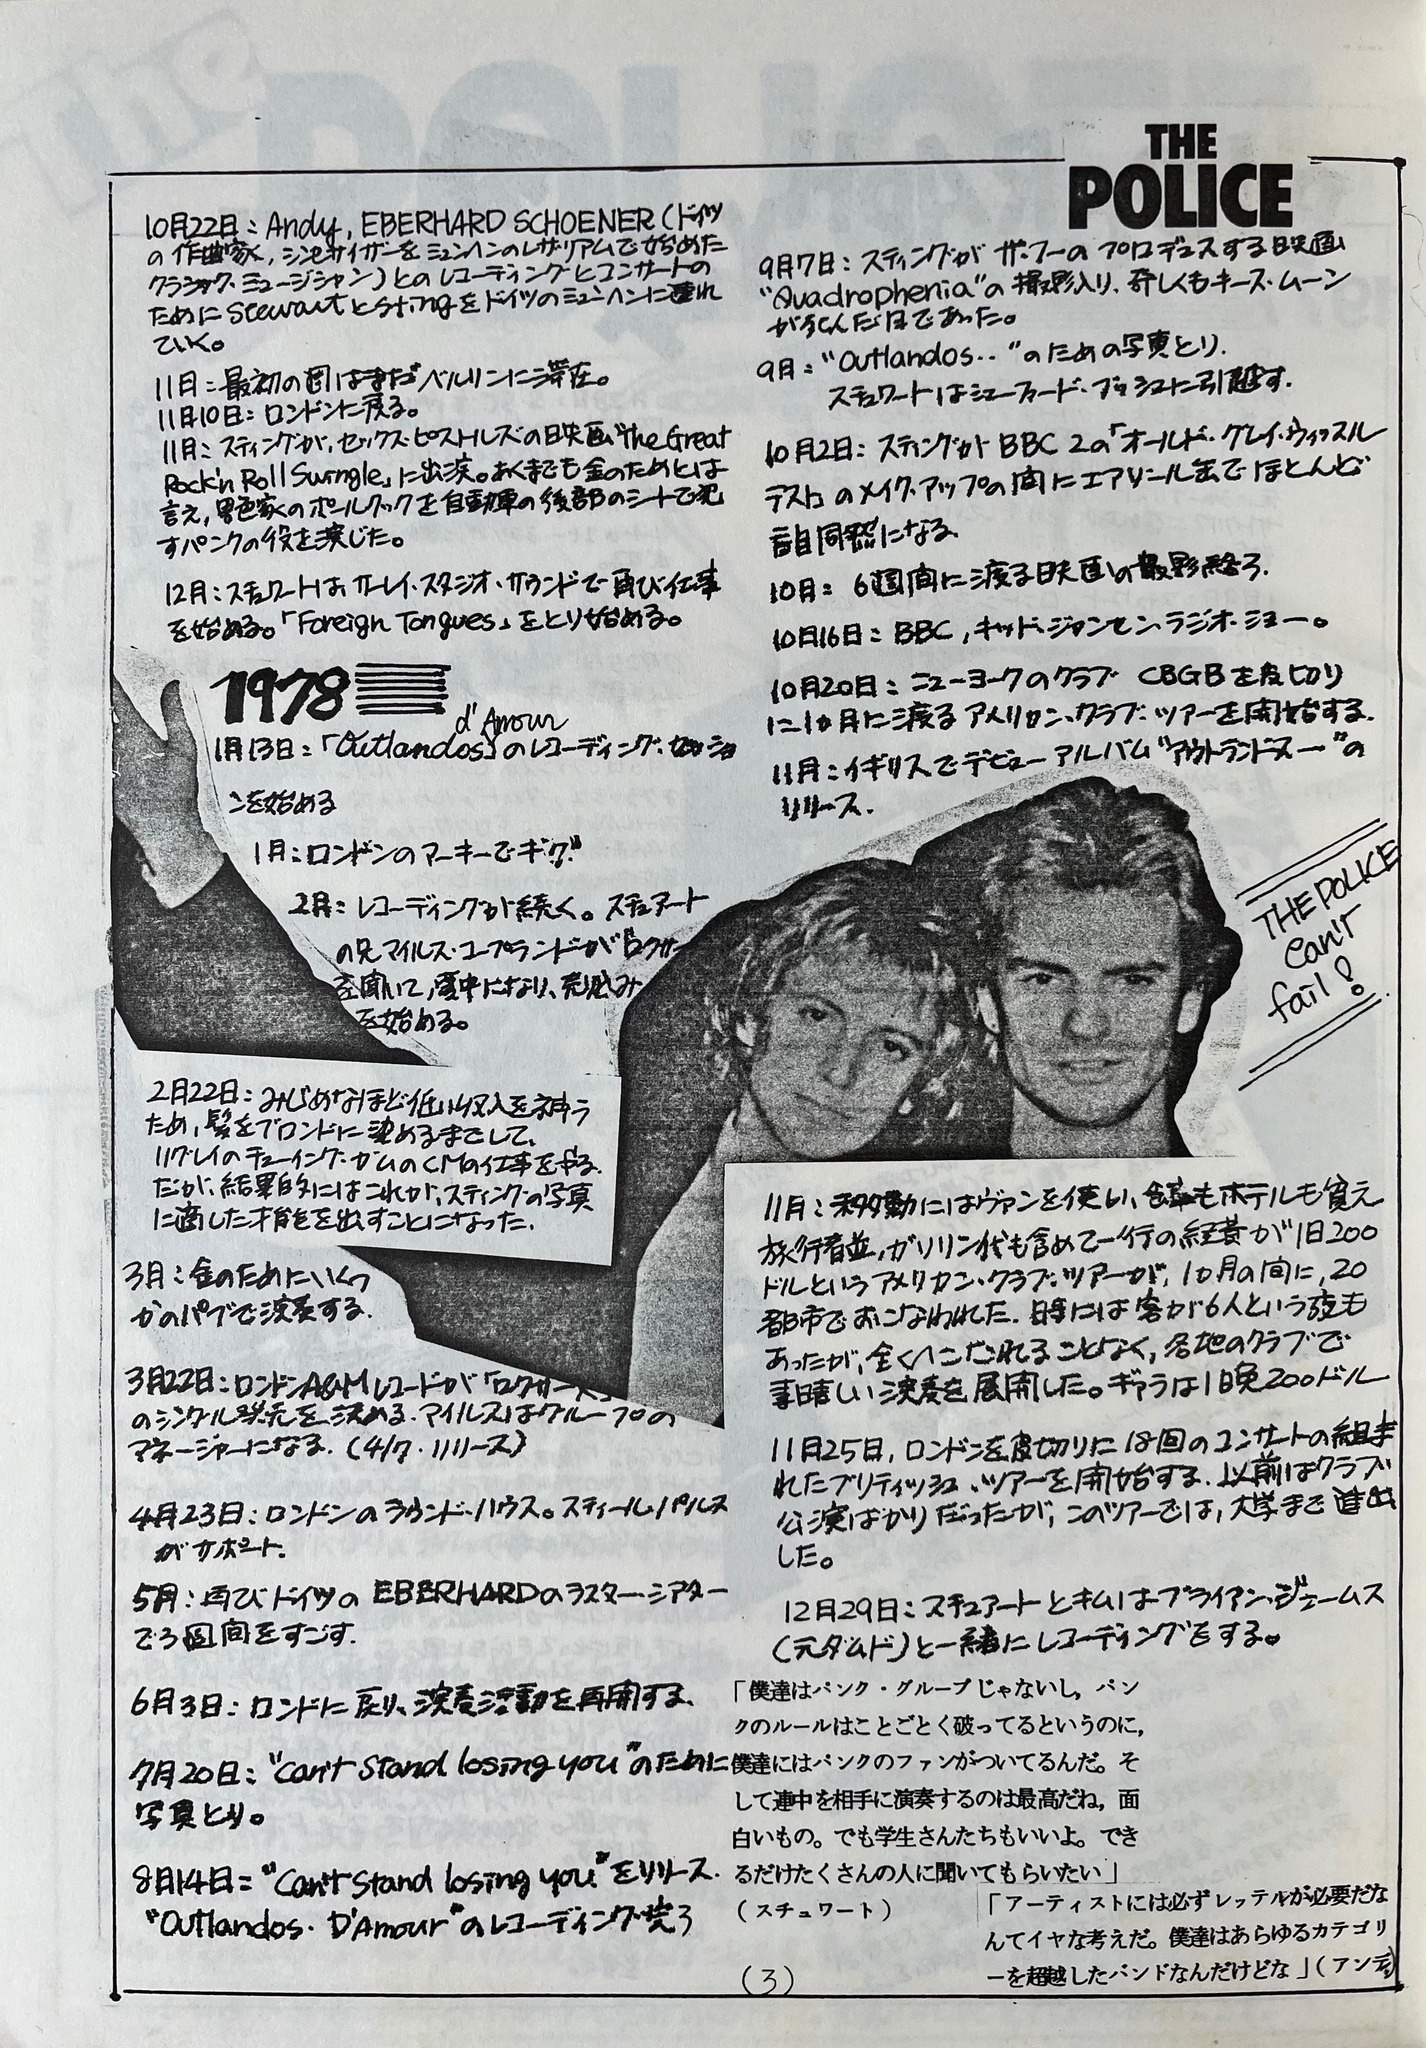 THE
POLICE
10月22日：Andy, EBERHARD SCHOENER（ドイツ
の作曲家，シンセサイザーをミュンヘンのレザリアムで始めた
クラシック・ミュージシャン）とのレコーディングとコンサートの
ために Stewart と Sting をドイツのミュンヘンに連れ
ていく。
11月：最初の週はまだベルリンに滞在。
11月10日：ロンドンに戻る。
11月：スティングが，セックス・ピストルズの映画「The Great
Rock'n Roll Swingle」に出演。あくまでも金のためとは
言え，男色家のポールクックを自動車の後部のシートで犯
すパンクの役を演じた。
12月：スチュワートはサーレイ・スタジオ・サウンドで再び仕事
を始める。「Foreign Tongues」をとり始める。
1978
d'Amour
1月13日：「Outlandos」のレコーディング・セッショ
ンを始める
1月：ロンドンのマーキーでギグ。
2月：レコーディングが続く。スチュアート
の兄マイルス・コープランドが「ロクサー
を聞いて，夢中になり、売り込み
を始める。
2月22日：みじめなほど低い収入を補う
ため，髪をブロンドに染めるまでして、
リグレイのチューイング・ガムのCMの仕事をやる．
だが、結果的にはこれが、スティングの写真
に適した才能を出すことになった．
3月：金のためにいくつ
かのパブで演奏する．
3月22日：ロンドンA&Mレコードが「ロクサーヌ」
のシングル発売を決める．マイルスはグループの
マネージャーになる．（4/7．リリース）
4月23日：ロンドンのラウンド・ハウス。スティール・パルス
がサポート．
5月：再びドイツの EBERHARDのラスター・シアター
で3週間をすごす．
6月3日：ロンドンに戻り、演奏活動を再開する、
7月20日：“Can't Stand losing you”のために
写真とり。
8月14日：“Can't Stand losing you”をリリース．
“Outlandos. D'Amour”のレコーディング終了
9月7日：スティングが ザ・フーの プロデュースする映画
“Quadrophenia”の撮影入り，奇しくもキース・ムーン
が死んだ日であった。
9月：“Outlandos‥”のための写真とり．
スチュワートはシェファード・ブッシュに引越す．
10月2日：スティングがBBC 2の「オールド・グレイ・ウィッスル
テスト」のメイク・アップの間にエアゾール缶でほとんど
盲目同然になる
10月：6週間に渡る映画の撮影終了．
10月16日：BBC，キッド・ジャンセン・ラジオ・ショー。
10月20日：ニューヨークのクラブ CBGBを皮切り
に1か月に渡るアメリカン・クラブ・ツアーを開始する．
11月：イギリスでデビューアルバム“アウトランドス―”の
リリース．
THE POLICE
Can't
fail!
11月：移動にはヴァンを使い、食事もホテルも貧乏
旅行者並，ガソリン代も含めて一行の経費が1日200
ドルというアメリカン・クラブ・ツアーが，1か月の間に，20
都市でおこなわれた．時には客が6人という夜も
あったが，全くへこたれることなく，各地のクラブで
素晴しい演奏を展開した。ギャラは1晩200ドル
11月25日，ロンドンを皮切りに18回のコンサートの組ま
れたブリティッシュ・ツアーを開始する．以前はクラブ
公演ばかりだったが，このツアーでは，大学まで進出
した。
12月29日：スチュアートとキムはブライアン・ジェームス
（元ダムド）と一緒にレコーディングをする。
「僕達はパンク・グループじゃないし，パン
クのルールはことごとく破ってるというのに，
僕達にはパンクのファンがついてるんだ。そ
して連中を相手に演奏するのは最高だね，面
白いもの。でも学生さんたちもいいよ。でき
るだけたくさんの人に聞いてもらいたい」
（スチュワート）
「アーティストには必ずレッテルが必要だな
んてイヤな考えだ。僕達はあらゆるカテゴリ
ーを超越したバンドなんだけどな」（アンディ）
(3)